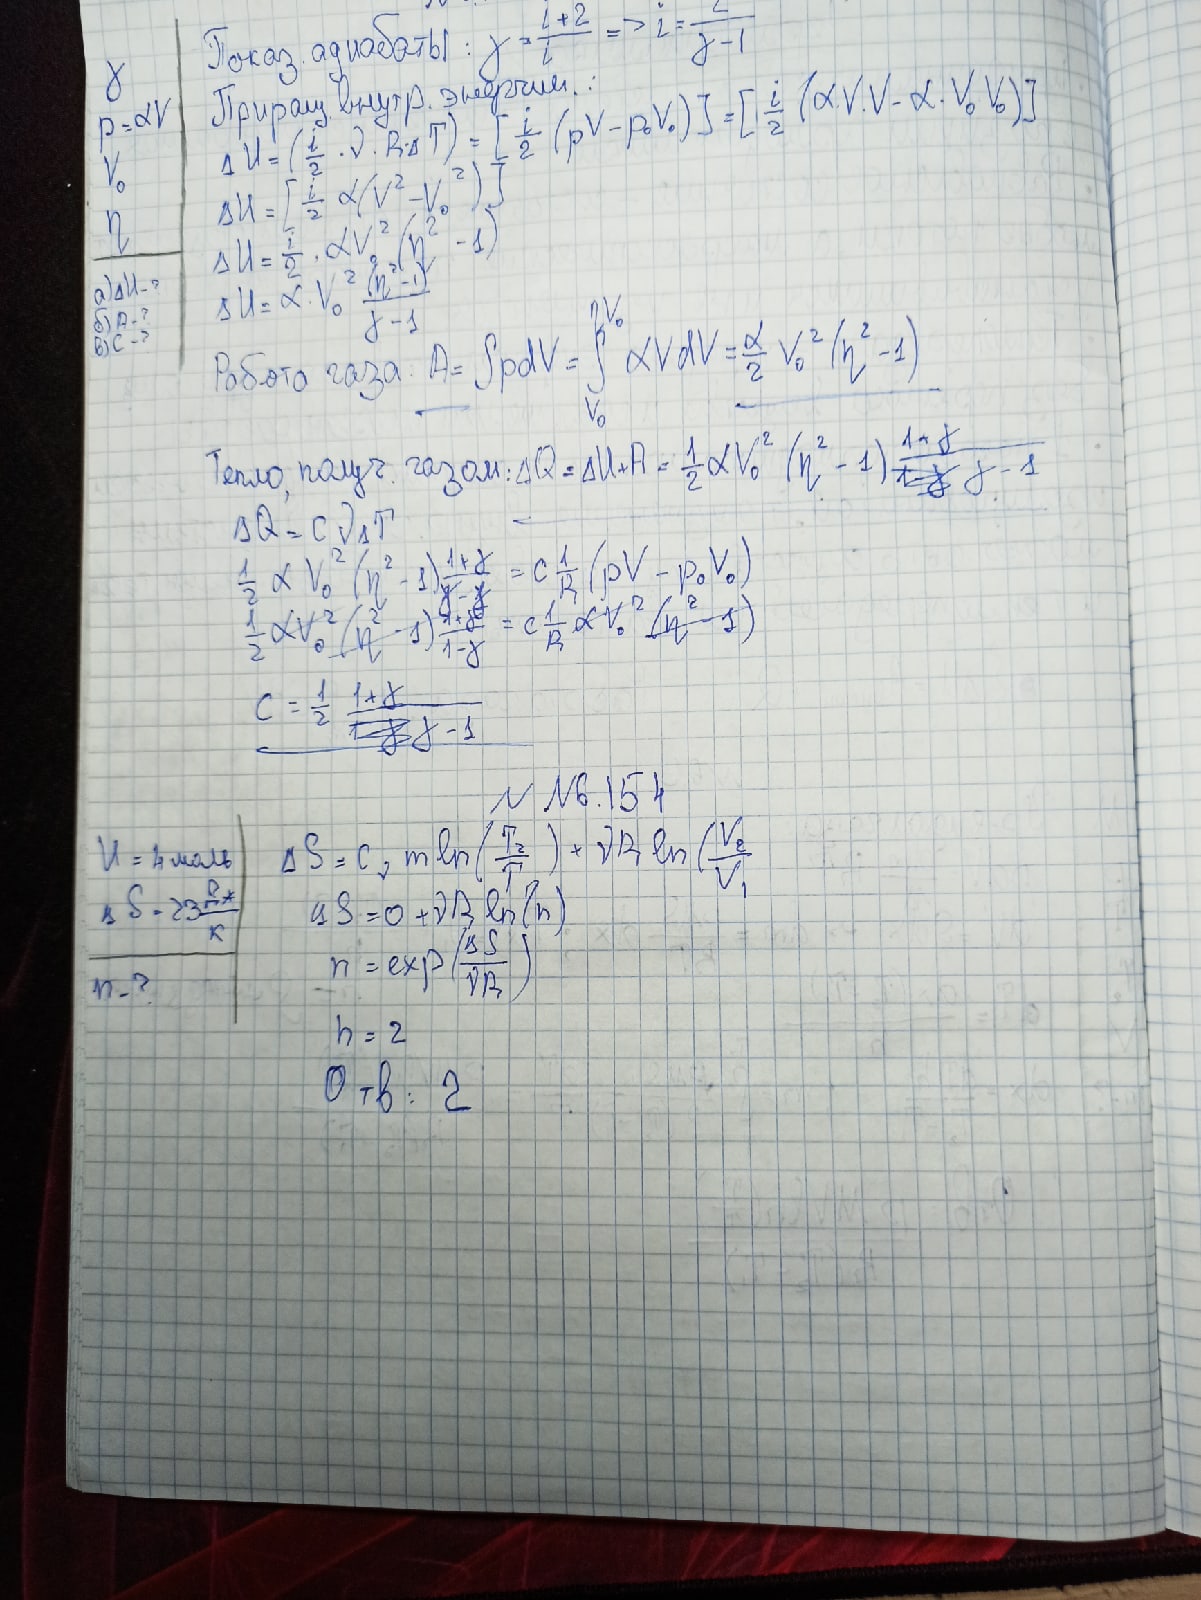 Показ. адиабаты: γ = (i+2)/i => i = 2/(γ-1)
γ
p = αV
V₀
η
а) ΔU-?
б) A-?
в) C-?
Приращ. внутр. энергии.:
ΔU = (i/2 · ν · R · ΔT) = [i/2 (pV - p₀V₀)] = [i/2 (αV·V - α·V₀V₀)]
ΔU = [i/2 α(V² - V₀²)]
ΔU = i/2 · αV₀² (η² - 1)
ΔU = α · V₀² (η² - 1)/(γ - 1)
Работа газа: A = ∫pdV = ∫_{V₀}^{ηV₀} αVdV = α/2 V₀² (η² - 1)
Тепло, получ. газом: ΔQ = ΔU + A = 1/2 αV₀² (η² - 1) (1+γ)/(γ - 1)
ΔQ = C ν ΔT
1/2 αV₀² (η² - 1) (1+γ)/ = C 1/R (pV - p₀V₀)
1/2 αV₀² (η² - 1) (1+γ)/(1-γ) = C 1/R αV₀² (η² - 1)
C = 1/2 (1+γ)/(γ - 1)
N N6.154
= 4 моль
ΔS = 23 Дж/К
n-?
ΔS = Cᵥ m ln(T₂/T₁) + νR ln(V₂/V₁)
ΔS = 0 + νR ln(n)
n = exp(ΔS/νR)
n = 2
Отв: 2